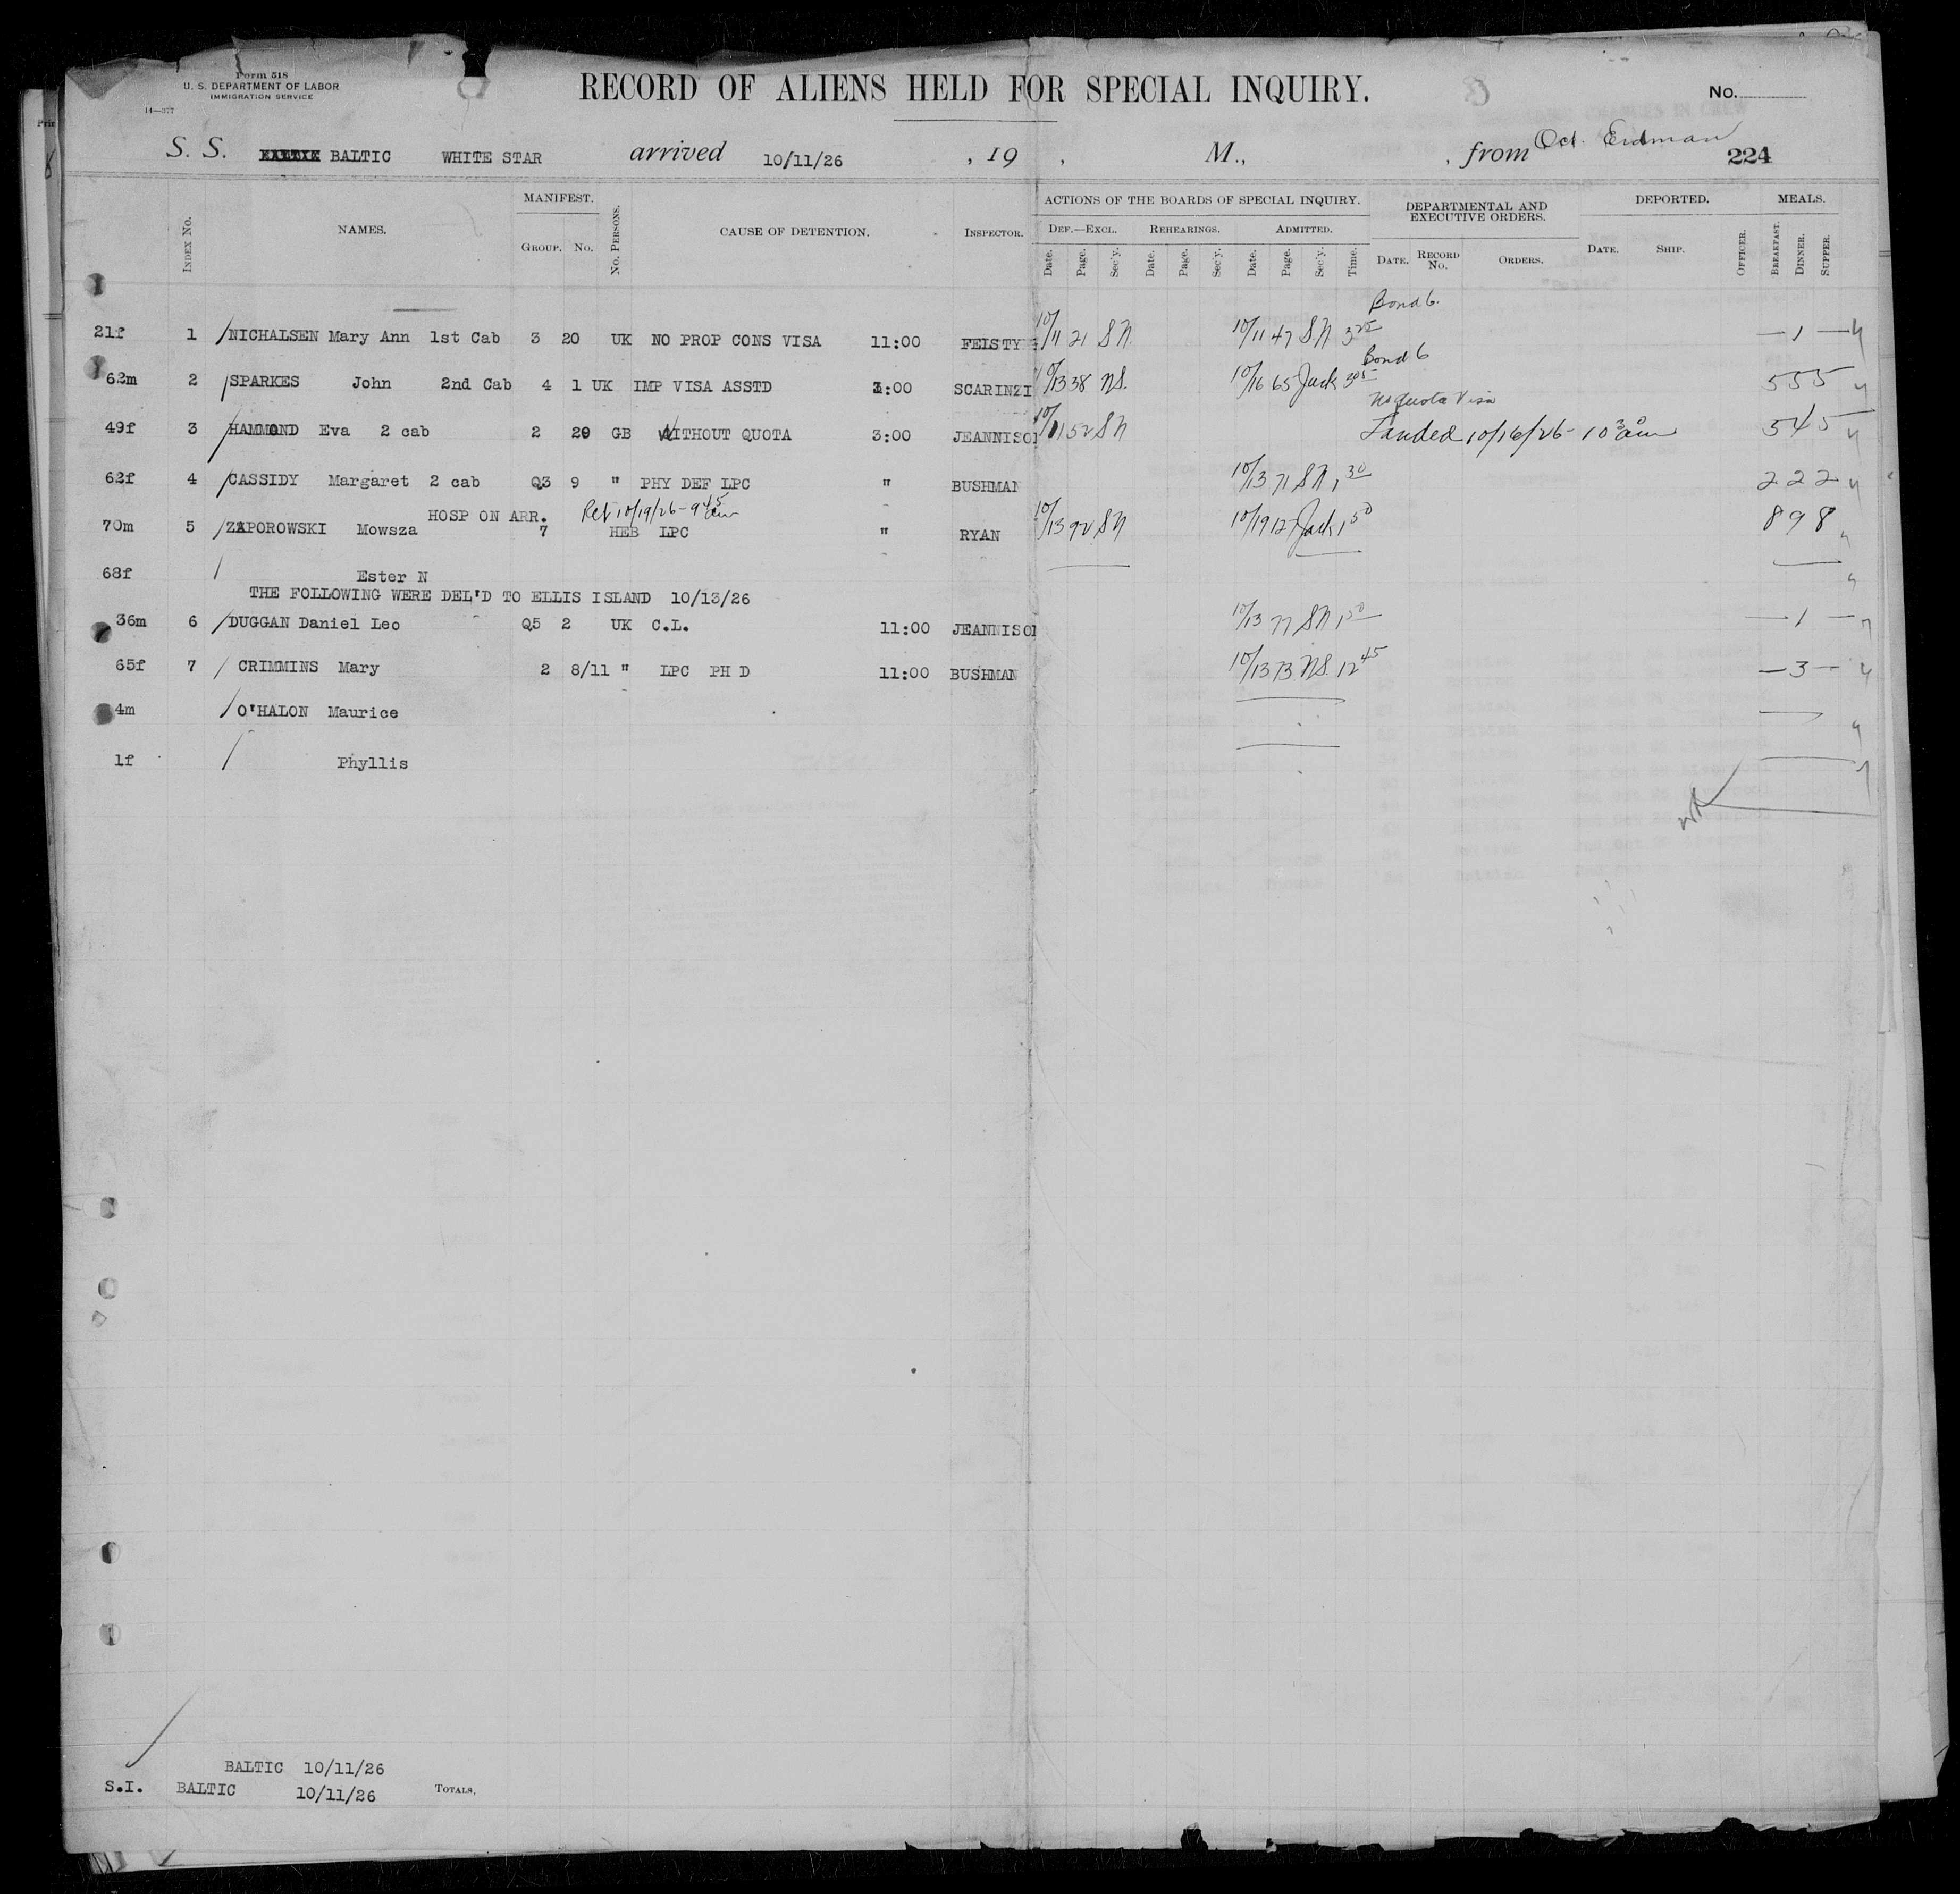 Form 518
U. S. DEPARTMENT OF LABOR
IMMIGRATION SERVICE
14—377
RECORD OF ALIENS HELD FOR SPECIAL INQUIRY.
No.
S. S. BALTIC WHITE STAR arrived 10/11/26 , 19 , M., , from Oct. Erdman
224
INDEX No. NAMES. MANIFEST. GROUP. No. No. PERSONS. CAUSE OF DETENTION. INSPECTOR.
ACTIONS OF THE BOARDS OF SPECIAL INQUIRY. DEPARTMENTAL AND EXECUTIVE ORDERS. DEPORTED. MEALS.
DEF.—EXCL. REHEARINGS. ADMITTED.
Date. Page. Sec'y. Date. Page. Sec'y. Date. Page. Sec'y. Time. DATE. RECORD No. ORDERS. DATE. SHIP. OFFICER. BREAKFAST. DINNER. SUPPER.
Bond 6.
21f 1 /NICHALSEN Mary Ann 1st Cab 3 20 UK NO PROP CONS VISA 11:00 FEISTY 10/11 21 SN. 10/11 47 SN 3 25 — 1 —
Bond 6
62m 2 /SPARKES John 2nd Cab 4 1 UK IMP VISA ASSTD :00 SCARINZI 10/13 38 NS. 10/16 65 Jack 3 05 5 5 5
No Quota Visa
49f 3 /HAMMOND Eva 2 cab 2 29 GB WITHOUT QUOTA 3:00 JEANNISON 10/11 52 SN Landed 10/16/26 - 10 30 am 5 4 5
62f 4 /CASSIDY Margaret 2 cab Q3 9 " PHY DEF LPC " BUSHMAN 10/13 71 SN 1 30 2 2 2
HOSP ON ARR. Rel 10/19/26 - 9 45 am
70m 5 /ZAPOROWSKI Mowsza 7 HEB LPC " RYAN 10/13 92 SN 10/19 127 Jack 1 50 8 9 8
68f / Ester N
THE FOLLOWING WERE DEL'D TO ELLIS ISLAND 10/13/26
36m 6 /DUGGAN Daniel Leo Q5 2 UK C.L. 11:00 JEANNISON 10/13 77 SN 1 50 — 1 —
65f 7 / CRIMMINS Mary 2 8/11 " LPC PH D 11:00 BUSHMAN 10/13 73 NS. 12 45 — 3 —
4m /O'HALON Maurice
1f / Phyllis
BALTIC 10/11/26
S.I. BALTIC 10/11/26 TOTALS,